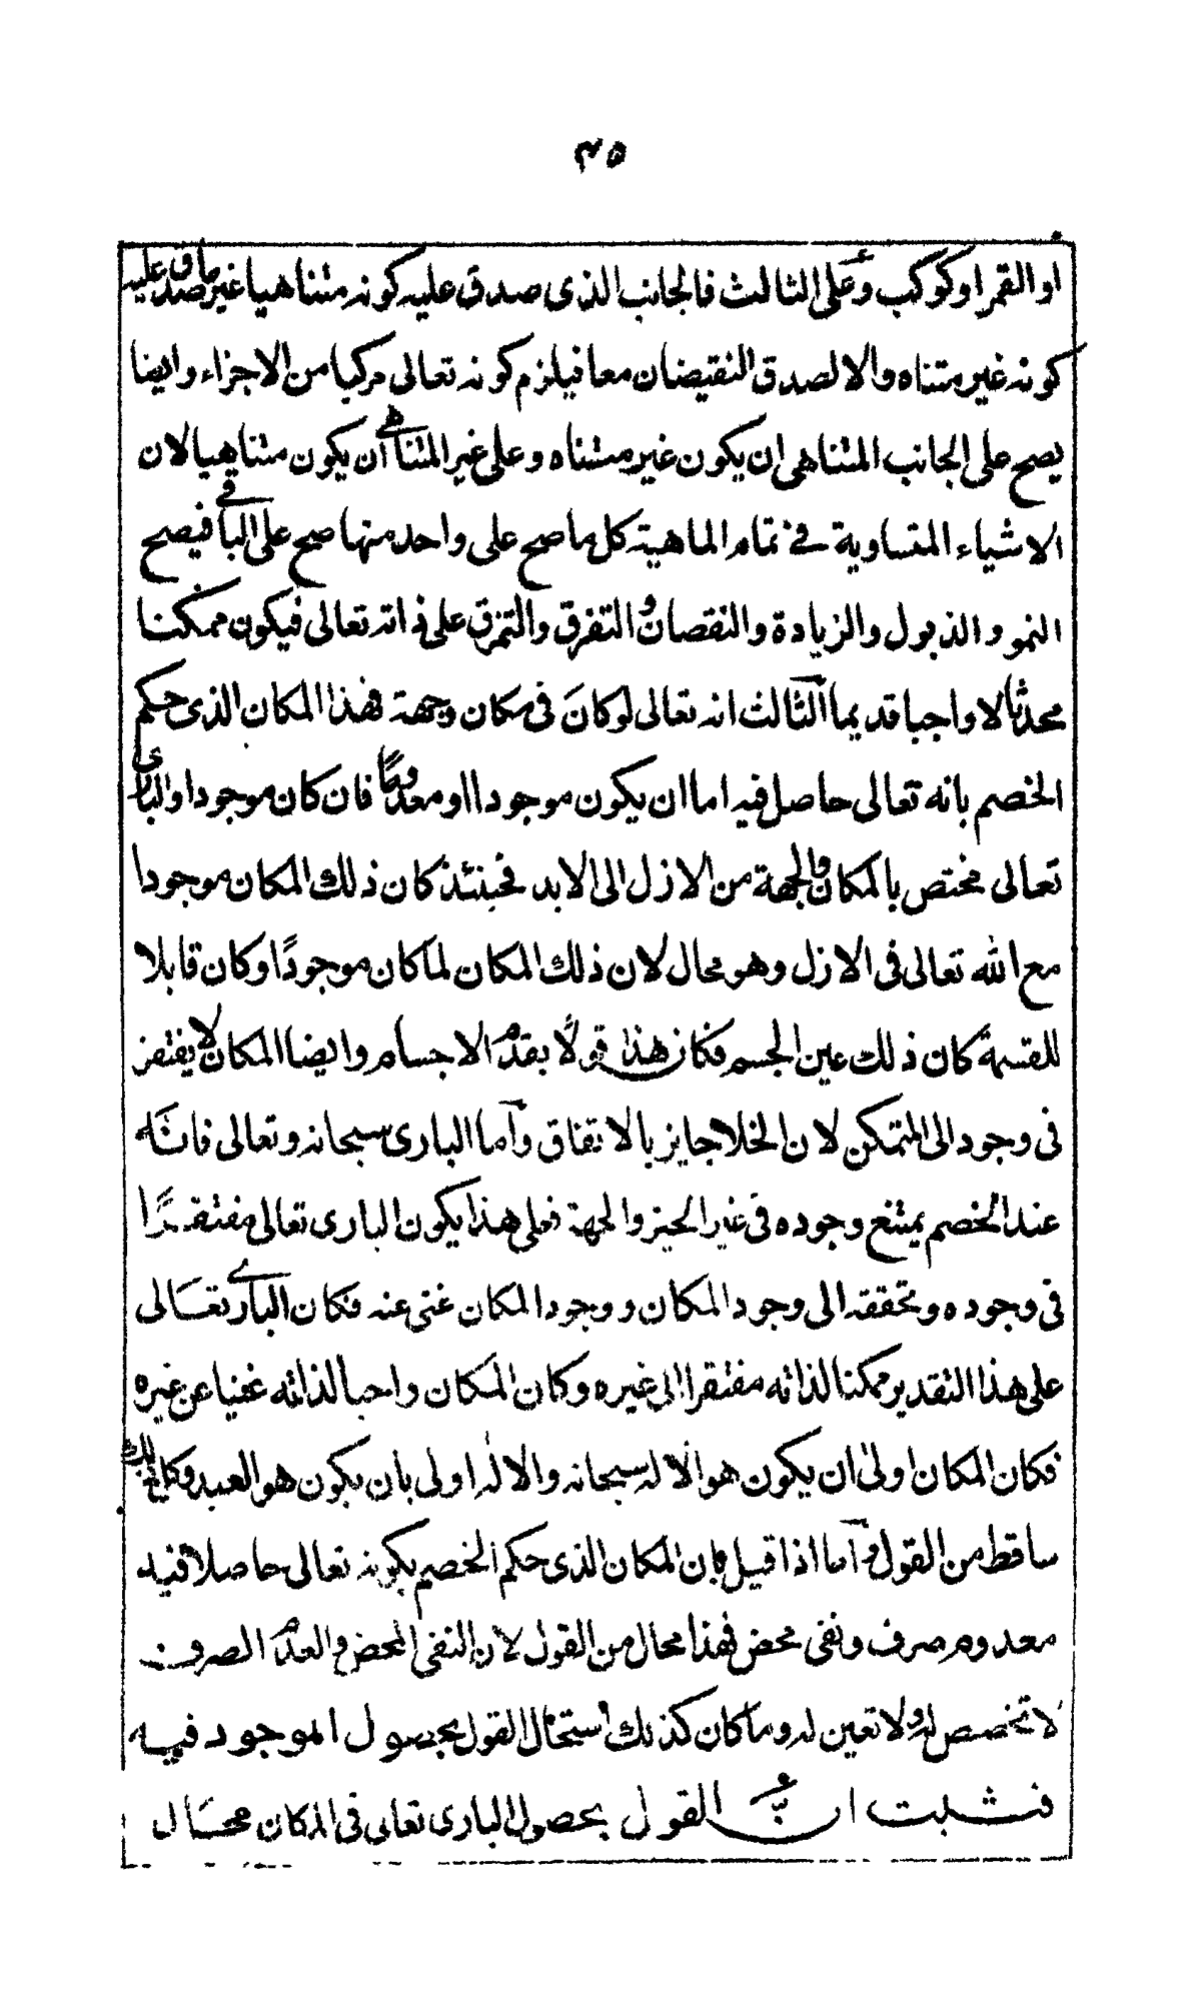 ٣٥
او القمر او كوكب وعلى الثالث فالجانب الذى صدق عليه كونه متناهيا غير ما صدق عليه
كونه غير متناه والا لصدق النقيضان معا فيلزم كونه تعالى مركبا من الاجزاء وايضا
يصح على الجانب المتناهى ان يكون غير متناه وعلى غير المتناهى ان يكون متناهيا لان
الاشياء المتساوية فى تمام الماهية كل ما صح على واحد منها صح على الباقى فيصح
النمو والذبول والزيادة والنقصان والتفرق والتمزق على ذاته تعالى فيكون ممكنا
محدثا لا واجبا قديما الثالث انه تعالى لو كان فى مكان وجهة فهذا المكان الذى حكم
الخصم بانه تعالى حاصل فيه اما ان يكون موجودا او معدومًا فان كان موجودا والبارى
تعالى مختص بالمكان والجهة من الازل الى الابد فحينئذ كان ذلك المكان موجودا
مع الله تعالى فى الازل وهو محال لان ذلك المكان لما كان موجودًا وكان قابلا
للقسمة كان ذلك عين الجسم فكان هذا قولًا بقدم الاجسام وايضا المكان لا يفتقر
فى وجود الى المتمكن لان الخلا جايز بالاتفاق وأما البارى سبحانه وتعالى فانه
عند الخصم يمتنع وجوده فى غير الحيز والجهة فعلى هذا يكون البارى تعالى مفتقرًا
فى وجوده وتحققه الى وجود المكان ووجود المكان غنى عنه فكان البارى تعالى
على هذا التقدير ممكنا لذاته مفتقرا الى غيره وكان المكان واجبا لذاته غنيا عن غيره
فكان المكان اولى ان يكون هو الاله سبحانه والاله اولى بان يكون هو العبد وكل ذلك
ساقط من القول وأما اذا قيل بان المكان الذى حكم الخصم بكونه تعالى حاصلا فيه
معدوم صرف ونفى محض فهذا محال من القول لان النفى المحض والعدم الصرف
لا تخصص له ولا تعين له وما كان كذلك استحال القول بحصول الموجود فيه
فثبت ان القول بحصول البارى تعالى فى المكان محال